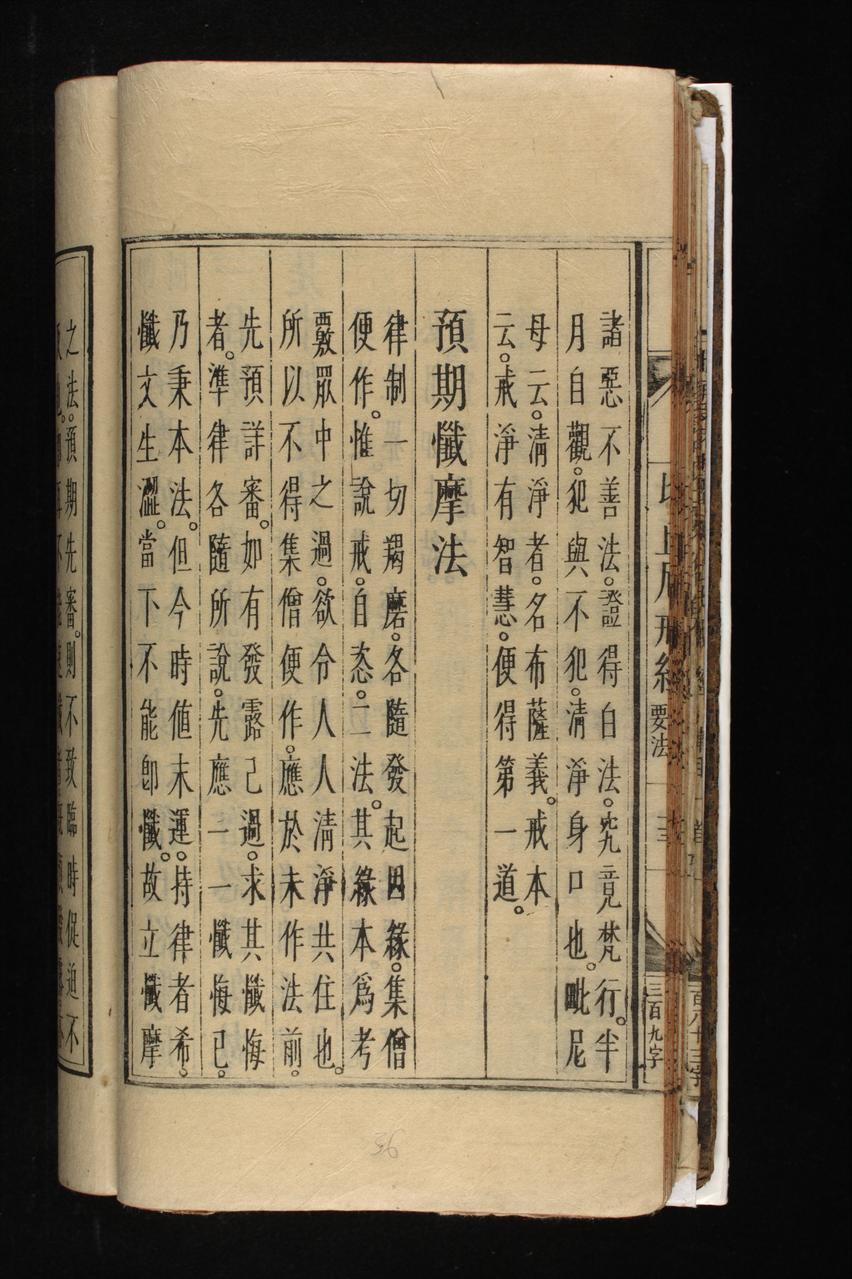 諸惡不善法。證得白法。究竟梵行。半
月自觀。犯與不犯。清淨身口也。毗尼
母云。清淨者。名布薩義。戒本
云。戒淨有智慧。便得第一道。
預期懺摩法
律制一切羯磨。各隨發起因緣。集僧
便作。惟說戒。自恣。二法。其緣本為考
覈眾中之過。欲令人人清淨共住也。
所以不得集僧便作。應於未作法前。
先預詳審。如有發露己過。求其懺悔
者。準律各隨所說。先應一一懺悔已。
乃秉本法。但今時值末運。持律者希。
懺文生澀。當下不能即懺。故立懺摩
之法。預期先審。則不致臨時促迫不
要法
三百九字